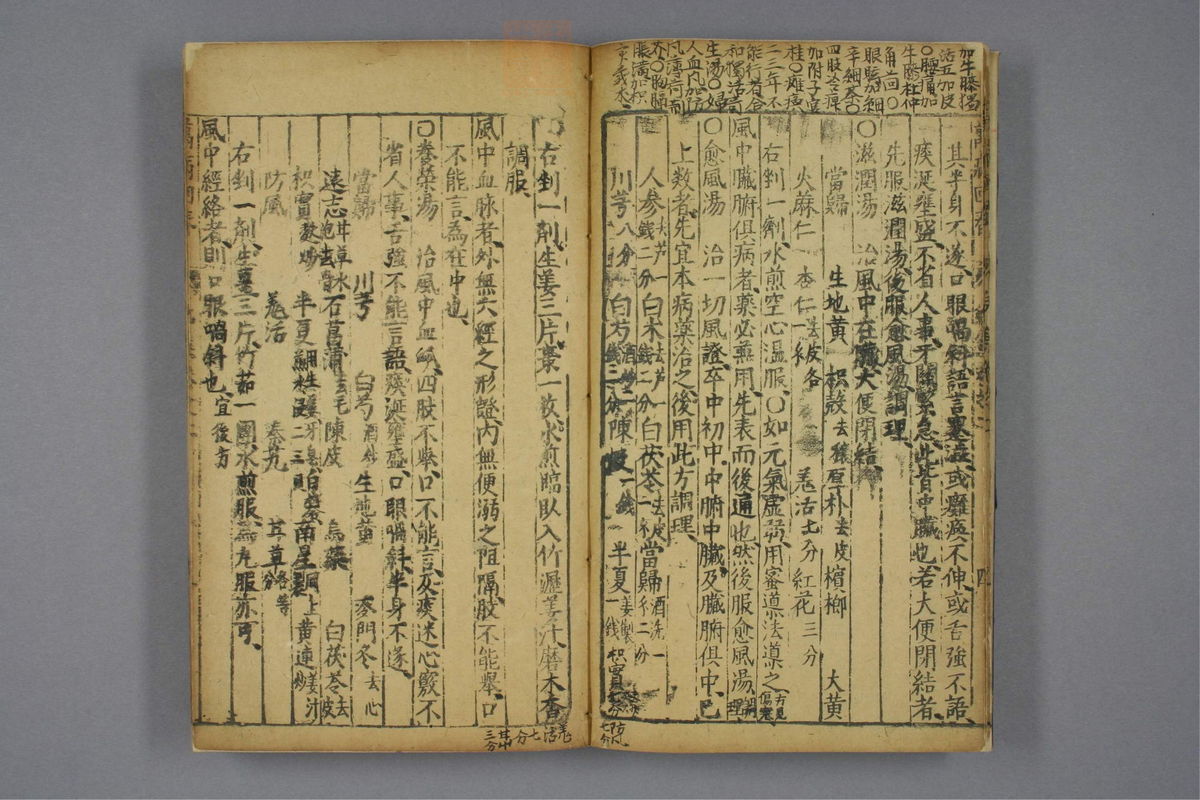 加牛膝獨
活五加皮
〇腰痛加
牛膝杜仲
眼眩加細
辛細參〇
四肢冷痺
加附子官
桂〇癱瘓
三三年不
能行者合
和獨活寄
生湯〇婦
人血風加防
風薄荷荊
芥〇胸膈
脹滿加枳
其半身不遂口眼喎斜語言蹇澁或癱瘓不伸或舌強不語
痰涎壅盛不省人事不關緊急此皆中臟也若大便閉結者
先服滋潤湯後服愈風湯調理
〇滋潤湯 治風中在臟大便閉結
當歸 生地黃 枳殼去穰 厚朴去皮 檳榔 大黃
火蔴仁一 杏仁一 去皮各 羗活七分 紅花三分
右剉一劑水煎空心温服〇如元氣虛弱用蜜導法導之方見傷寒
風中臟腑俱病者藥必兼用先表而後通也然後服愈風湯調理
〇愈風湯 治一切風證卒中初中中腑中臟及臟腑俱中已
上数者先宜本病藥治之後用此方調理
人參去芦一錢二分 白术去芦一錢二分 白茯苓去皮一 當歸酒洗一二分
川芎八分 白芍酒炒一錢三分 陳皮一錢 半夏姜製一錢 枳實 防風七分
羗活七分 甘艸三分
右剉一劑生姜三片棗一枚水煎臨臥入竹瀝姜汁磨木香
調服
風中血脉者外無六經之形證内無便溺之阻隔肢不能舉口
不能言為在中也
〇養榮湯 治風中血脉四肢不舉口不能言及痰迷心竅不
省人事舌強不能言語痰涎壅盛口眼喎斜半身不遂
當歸 川芎 白芍酒炒 生地黃 麥門冬去心
遠志甘草水泡去骨 石菖蒲去毛 陳皮 烏藥 白茯苓去皮
枳實麩炒 半夏 南星 黃連姜汁炒
防風 羗活 秦艽 甘草各等分
右剉一劑生薑三片竹茹一團水煎服為丸服亦可
風中經絡者則口眼喎斜也宜後方